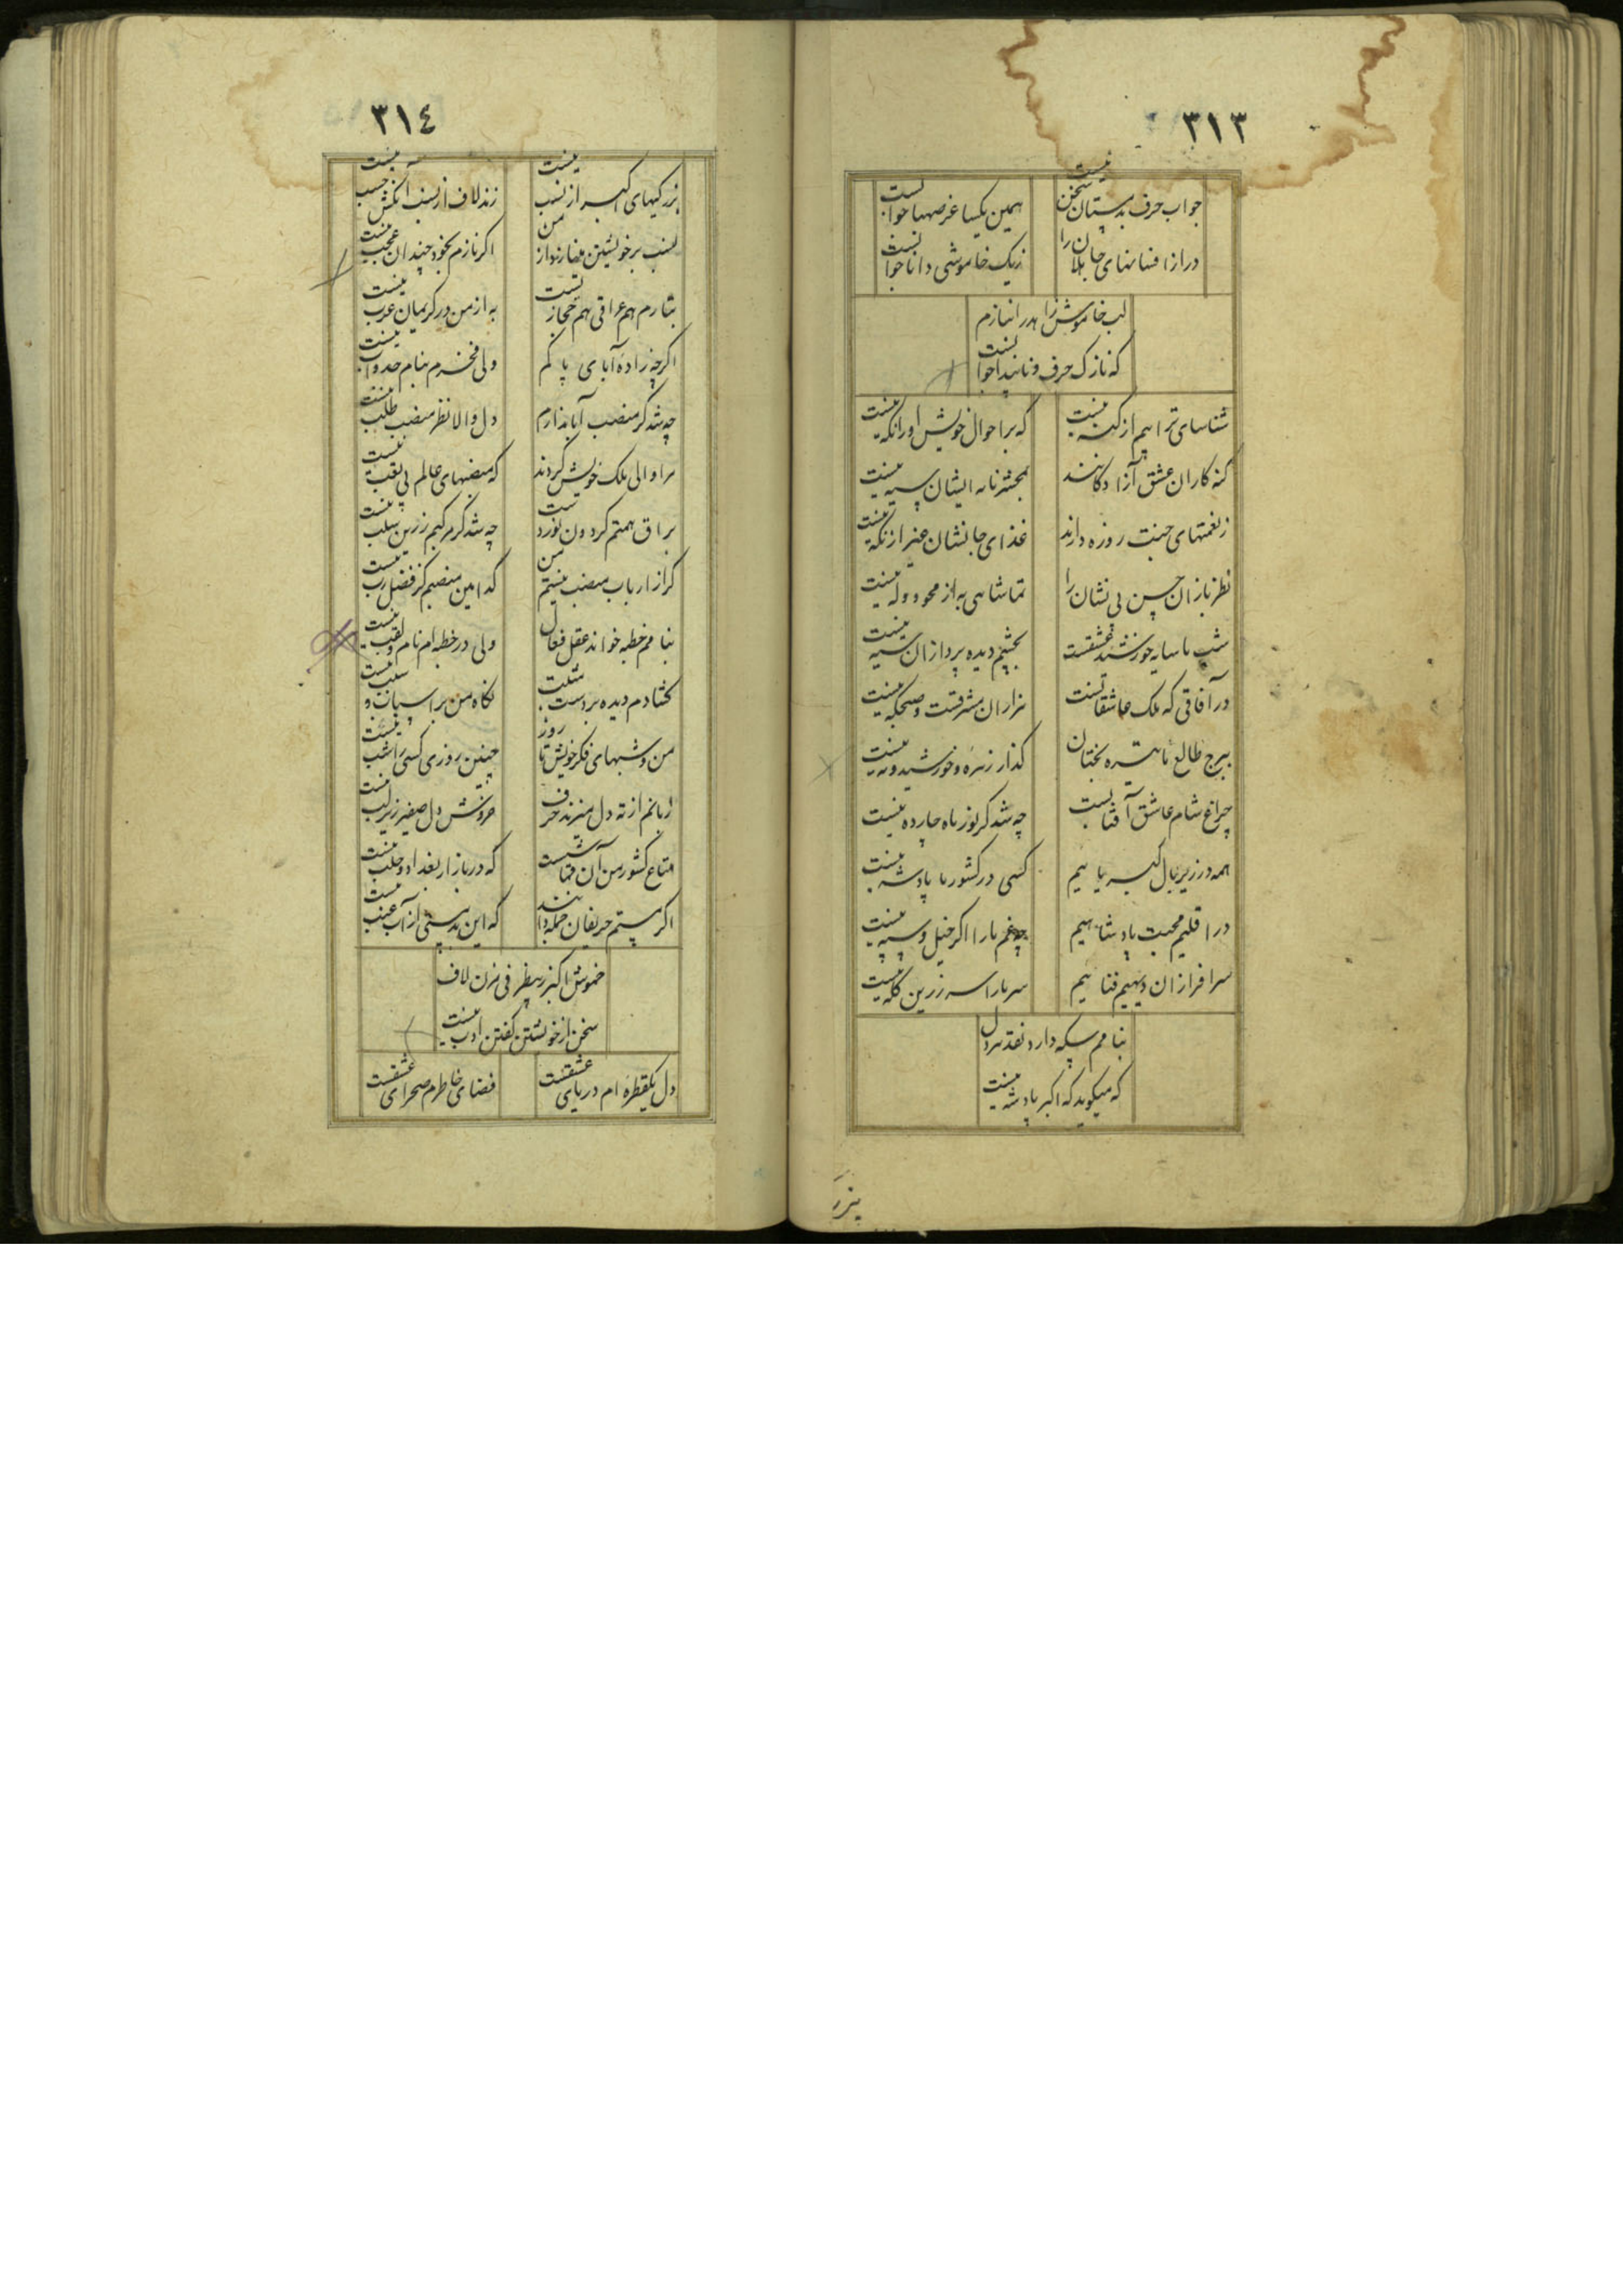 ٣١٣
جواب حرف بدمستان سخن نیست
همین یکیا عرصها جوابست
دراز افسانهای جاهلان را
ز یک خاموشی دانا جوابست
لب خاموش را
که نازک حرف و ناپیدا جوابست
شناسای ترا بیم از گنه نیست
که بر احوال خویش او را نگه نیست
گنه کاران عشق آزادکانند
بمحشر نامه ایشان سیه نیست
ز نعمتهای جنت روزه دارند
غذای جانشان غیر از نگه نیست
نظر بازان حسن بی نشان را
تماشاهی به از محو و وله نیست
شب ما سایه خورشید عشقست
بچشم دیده پردازان سیه نیست
در آفاقی که ملک عاشقانست
هزاران مشرقست و صبحگه نیست
ببرج طالع ما تیره بختان
گذار زهره و خورشید و مه نیست
چراغ شام عاشق آفتابست
چه شد گر نور ماه چارده نیست
همه در زیر بال کبریاییم
کسی در کشور ما پادشه نیست
در اقلیم محبت پادشاهیم
چه غم ما را اگر خیل و سپه نیست
سرافرازان دیهیم فناییم
سر ما را سر زرین کله نیست
بنامم سکه دارد نقد هر دل
که میگوید که اکبر پادشه نیست
بزر
٣١٤
بزرگیهای اکبر از نسب نیست
زند لاف از نسب آنکش حسب نیست
نسب بر خویشتن من
اگر نازم بخود چندان عجب نیست
هم عراقی هم حجازیست
به از من در کریمان عرب نیست
اگرچه زاده آبای پاکم
ولی فخرم بنام جد و اب نیست
چه شد گر منصب آبا ندارم
دل والا نظر منصب طلب نیست
مرا والی ملک خویش کردند
که منصبهای عالم بی تعب نیست
براق همتم گردون نوردست
چه شد گر مرکبم زرین سلب نیست
گر از ارباب منصب نیستم من
کدامین منصبم کز فضل رب نیست
بنامم خطبه خواند عقل فعال
ولی در خطبه ام نام و لقب نیست
گشادم دیده بر دست
نگاه من بر اسباب و سبب نیست
من و شبهای فکر خویش تا روز
چنین روزی کسی را شب نیست
زبانم از ته دل میزند حرف
خروش دل صفیر زیر لب نیست
متاع کشور من آن
که در بازار بغداد و حلب نیست
اگر مستم حریفان جمله دانند
که این بدمستی از آب عنب نیست
خموش اکبر ز بیظرفی مزن لاف
سخن از خویشتن گفتن ادب نیست
دل یکقطره ام دریای عشقست
فضای خاطرم صحرای عشقست